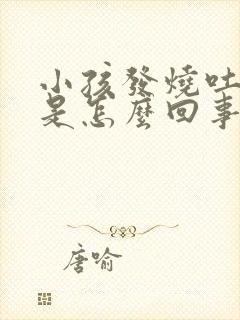 小孩發燒吐
是怎麼回事
唐喻